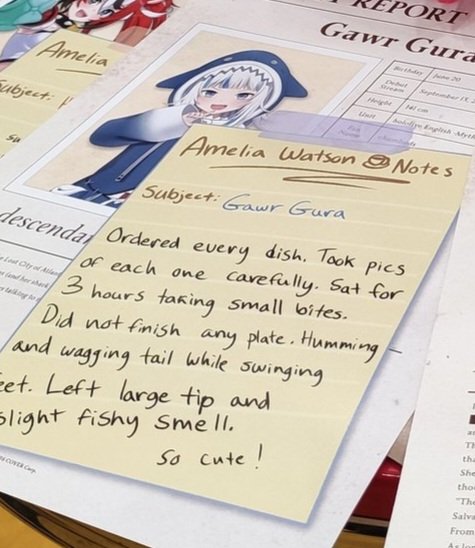 REPORT
Gawr Gura
Birthday June 20
Debut Stream September
Height 141 cm
Unit hololive English -Myth-
Fan Name
Amelia
Subject:
Amelia Watson Notes
Subject: Gawr Gura
Ordered every dish. Took pics
of each one carefully. Sat for
3 hours taking small bites.
Did not finish any plate. Humming
and wagging tail while swinging
Left large tip and
slight fishy smell.
So cute!
descendan
Lost City of Atlan
COVER Corp.
as
Th
tha
She
thou
"The
Salva
From
As lon